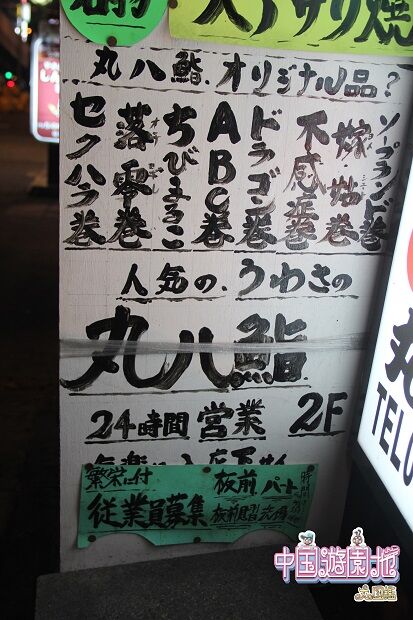 大アサリ焼
丸八鮨.オリジナル品?
ソープランド巻
嫁姑巻
不感症巻
ドラゴン巻
ABC巻
ちびまるこ
落零巻
セクハラ巻
人気の.うわさの
丸八鮨
24時間営業 2F
繁栄に付
従業員募集
板前.パート
TEL
中国遊園地